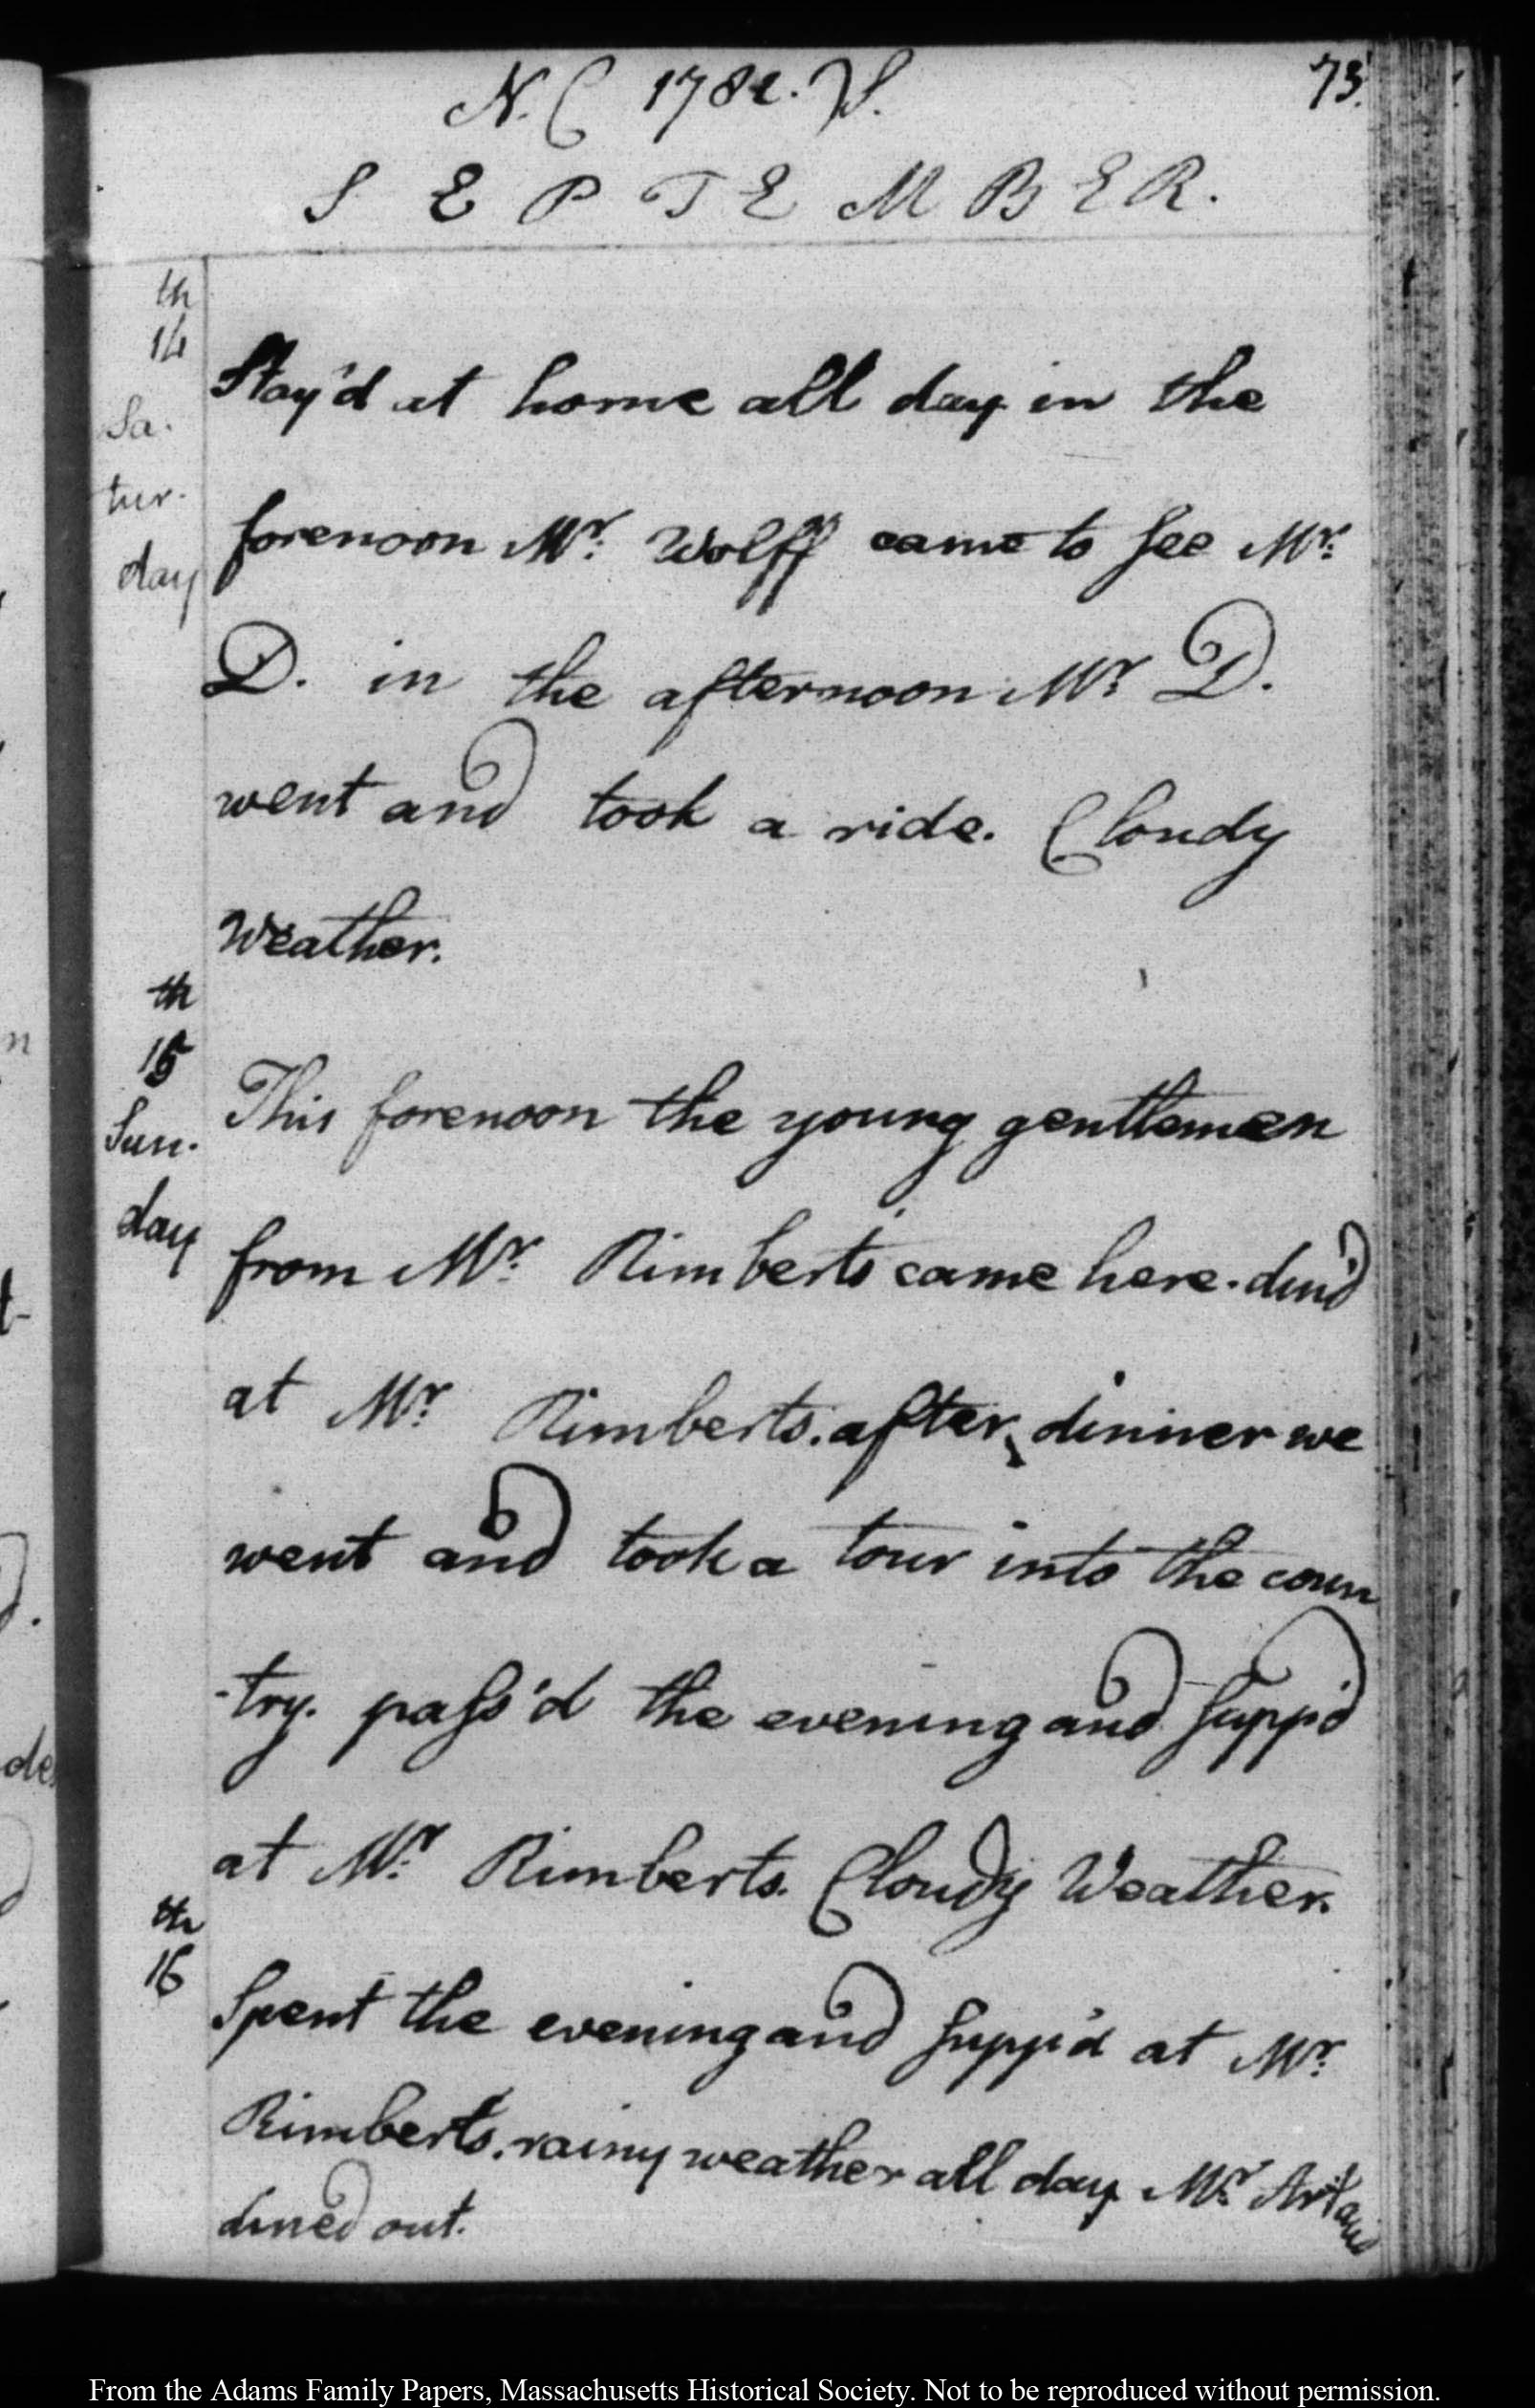 N. ( 1782. ) S.
73.
SEPTEMBER.
th
14
Sa.
tur.
day
Stay'd at home all day in the
forenoon Mr. Wolff came to see Mr.
D. in the afternoon Mr. D.
went and took a ride. Cloudy
Weather.
th
15
Sun.
day
This forenoon the young gentlemen
from Mr. Rimberts came here. din'd
at Mr. Rimberts. after dinner we
went and took a tour into the coun
-try. pass'd the evening and supp'd
at Mr. Rimberts. Cloudy Weather.
th
16
Spent the evening and supp'd at Mr.
Rimberts. rainy weather all day Mr. Artaud
dined out.
From the Adams Family Papers, Massachusetts Historical Society. Not to be reproduced without permission.